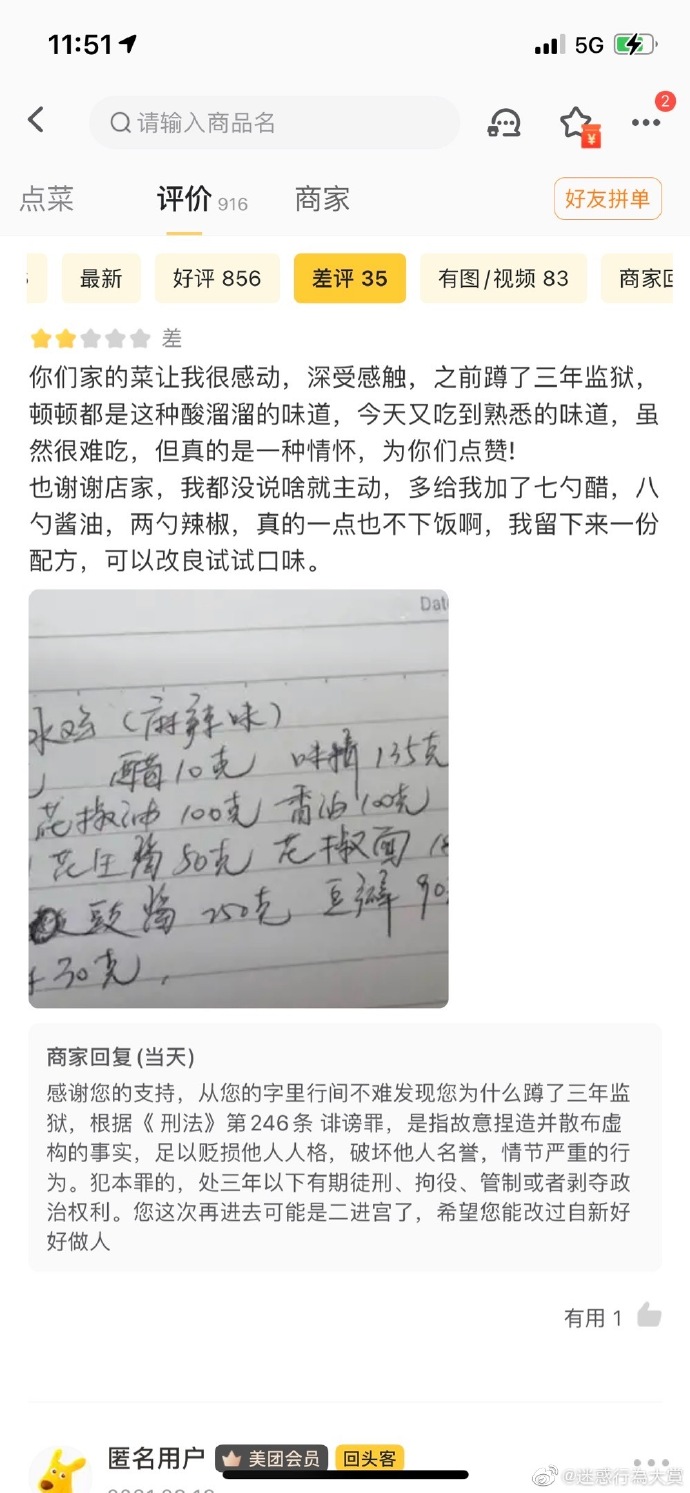 11:51
5G
请输入商品名
2
¥
点菜 评价 916 商家 好友拼单
最新 好评 856 差评 35 有图/视频 83 商家回
差
你们家的菜让我很感动，深受感触，之前蹲了三年监狱，
顿顿都是这种酸溜溜的味道，今天又吃到熟悉的味道，虽
然很难吃，但真的是一种情怀，为你们点赞!
也谢谢店家，我都没说啥就主动，多给我加了七勺醋，八
勺酱油，两勺辣椒，真的一点也不下饭啊，我留下来一份
配方，可以改良试试口味。
Dat
水鸡（麻辣味）
醋10克 味精135克
花椒油 100克 香油100克
花生酱50克 花椒面
豉酱 250克 豆瓣 90
30克，
商家回复(当天)
感谢您的支持，从您的字里行间不难发现您为什么蹲了三年监
狱，根据《 刑法》第246条 诽谤罪，是指故意捏造并散布虚
构的事实，足以贬损他人人格，破坏他人名誉，情节严重的行
为。犯本罪的，处三年以下有期徒刑、拘役、管制或者剥夺政
治权利。您这次再进去可能是二进宫了，希望您能改过自新好
好做人
有用 1
匿名用户 美团会员 回头客
@迷惑行為大賞